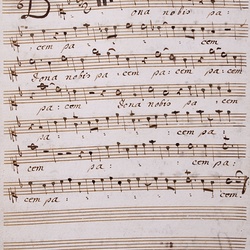 D ona nobis pa:
cem pa: cem
Dona nobis pa: cem pa: cem
pa: cem: Dona nobis pa:
cem pa: cem
cem pa: cem
cem pa: cem: